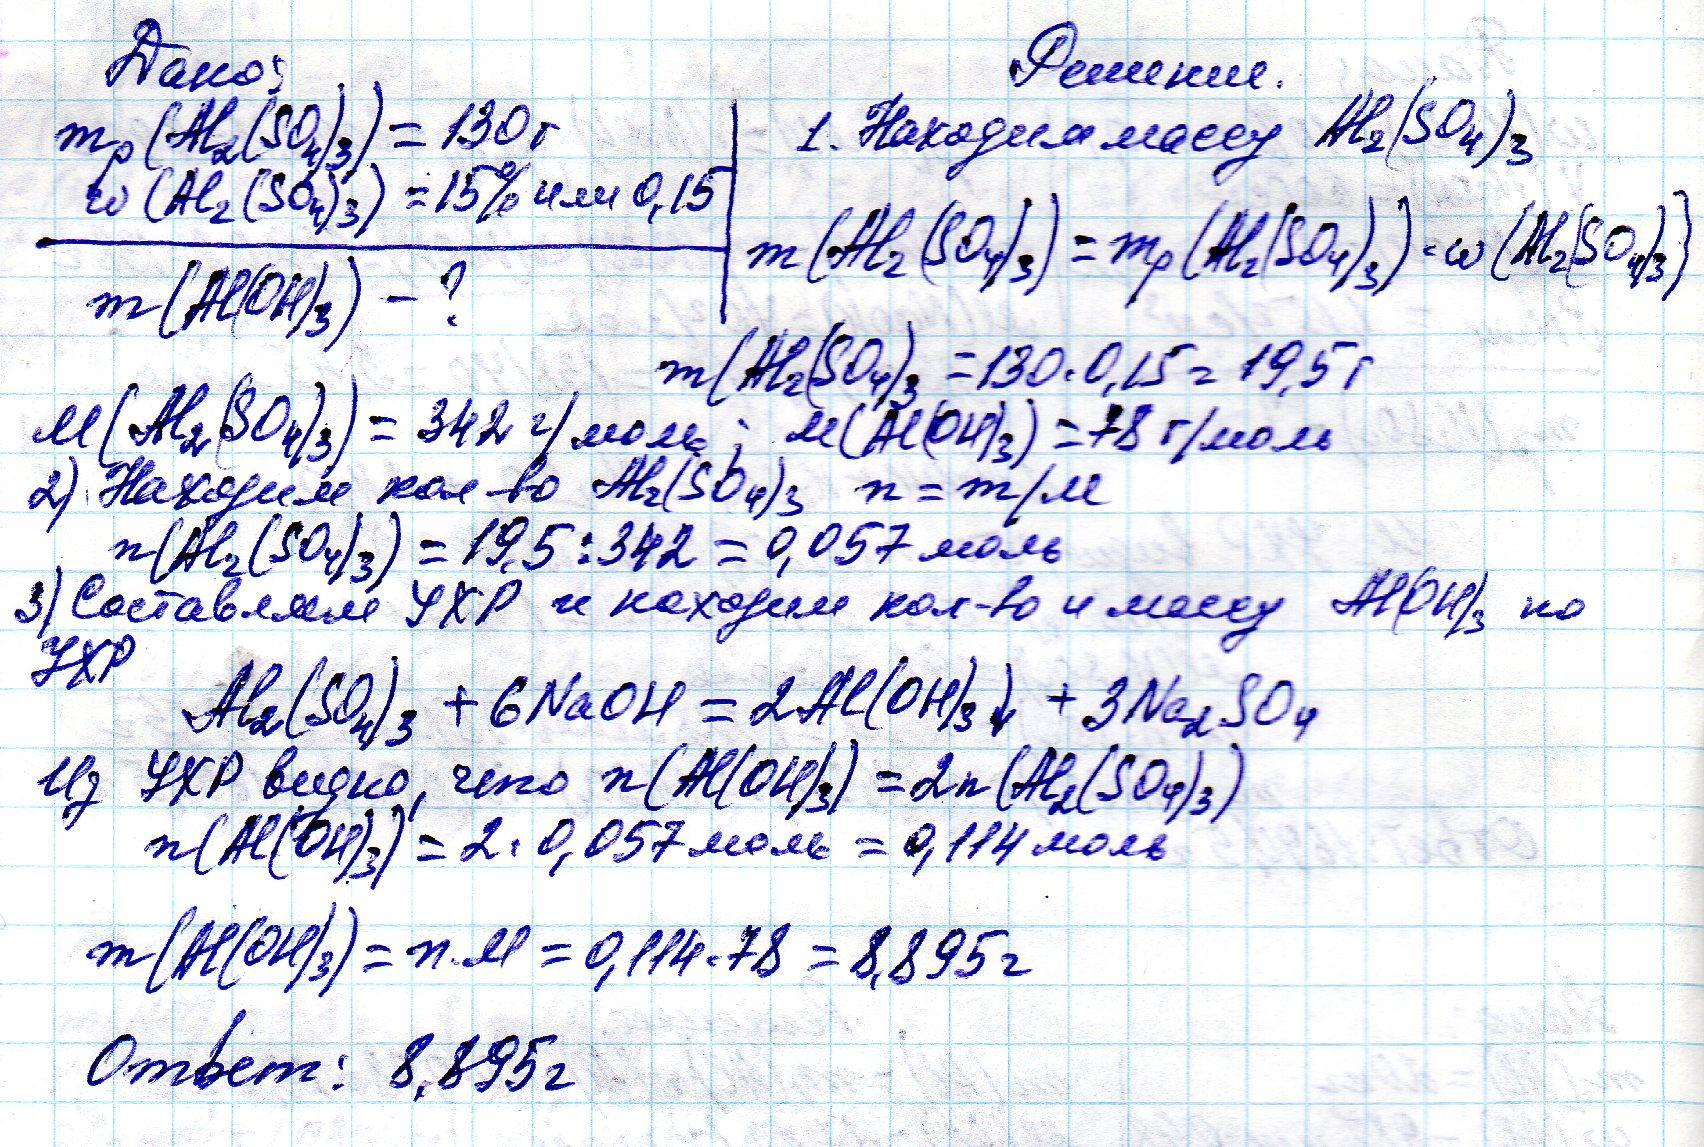 Дано:
mр(Al₂(SO₄)₃) = 130г
w(Al₂(SO₄)₃) = 15% или 0,15
m(Al(OH)₃) - ?
Решение.
1. Находим массу Al₂(SO₄)₃
m(Al₂(SO₄)₃) = mр(Al₂(SO₄)₃) · w(Al₂(SO₄)₃)
m(Al₂(SO₄)₃ = 130·0,15 = 19,5г
M(Al₂(SO₄)₃) = 342 г/моль; M(Al(OH)₃) = 78 г/моль
2) Находим кол-во Al₂(SO₄)₃ n = m/M
n(Al₂(SO₄)₃) = 19,5:342 = 0,057 моль
3) Составляем УХР и находим кол-во и массу Al(OH)₃ по
УХР
Al₂(SO₄)₃ + 6NaOH = 2Al(OH)₃↓ + 3Na₂SO₄
Из УХР видно, что n(Al(OH)₃) = 2n(Al₂(SO₄)₃)
n(Al(OH)₃) = 2·0,057 моль = 0,114 моль
m(Al(OH)₃) = n·M = 0,114·78 = 8,895г
Ответ: 8,895г